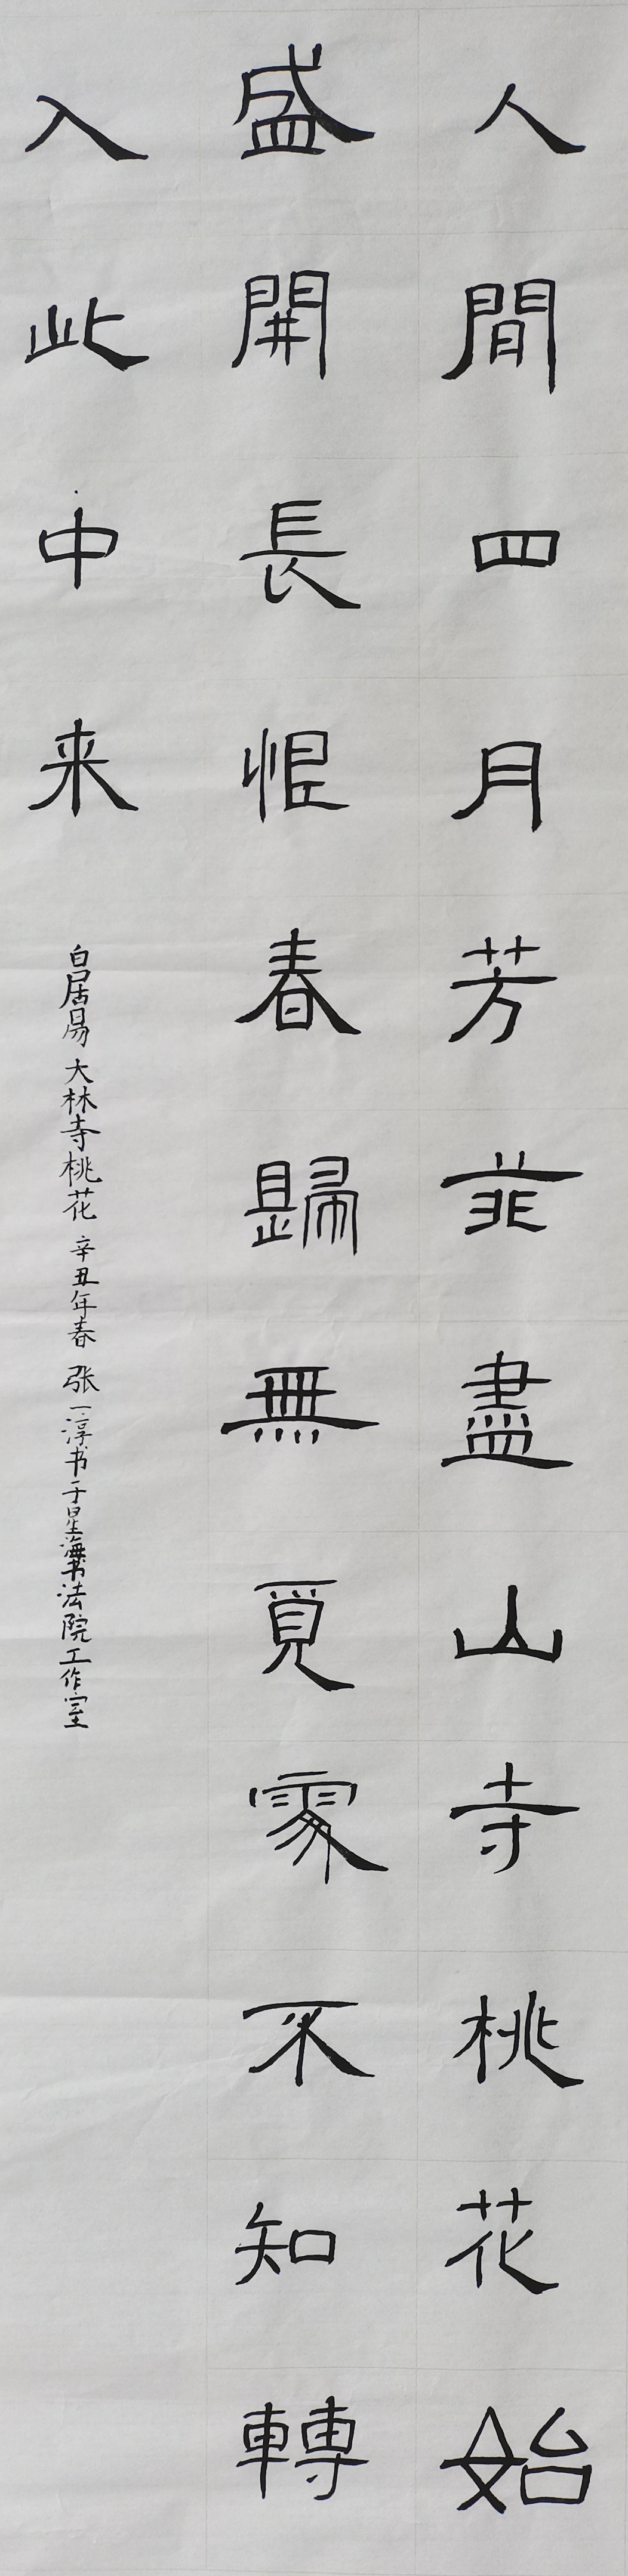 人間四月芳菲盡山寺桃花始
盛開長恨春歸無覓處不知轉
入此中来
白居易 大林寺桃花 辛丑年春 张一淳书于星海书法院工作室